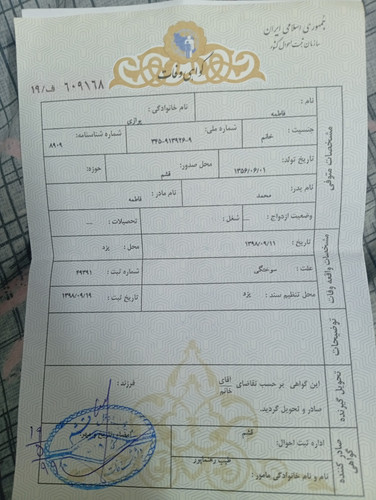 جمهوری اسلامی ایران
سازمان ثبت احوال کشور
گواهی وفات
۶۰۹۱۶۸ الف/۱۹
مشخصات متوفی
نام : فاطمه
نام خانوادگی : برازی
جنسیت : خانم
شماره ملی: ۳۴۵-۹۱۳۹۲۶-۹
شماره شناسنامه: ۸۹۰۹
تاریخ تولد: ۱۳۵۶/۰۶/۰۱
محل صدور: قشم
حوزه:
نام پدر: محمد
نام مادر : فاطمه
وضعیت ازدواج : ...
شغل :
تحصیلات : ...
مشخصات واقعه وفات
تاریخ : ۱۳۹۸/۰۹/۱۱
محل : یزد
علت : سوختگی
شماره ثبت : ۶۹۳۹۱
محل تنظیم سند : یزد
تاریخ ثبت : ۱۳۹۸/۰۹/۱۹
توضیحات
تحویل گیرنده
این گواهی بر حسب تقاضای آقای
خانم
فرزند :
صادر و تحویل گردید.
صادر کننده گواهی
اداره ثبت احوال: قشم
نام و نام خانوادگی مامور :